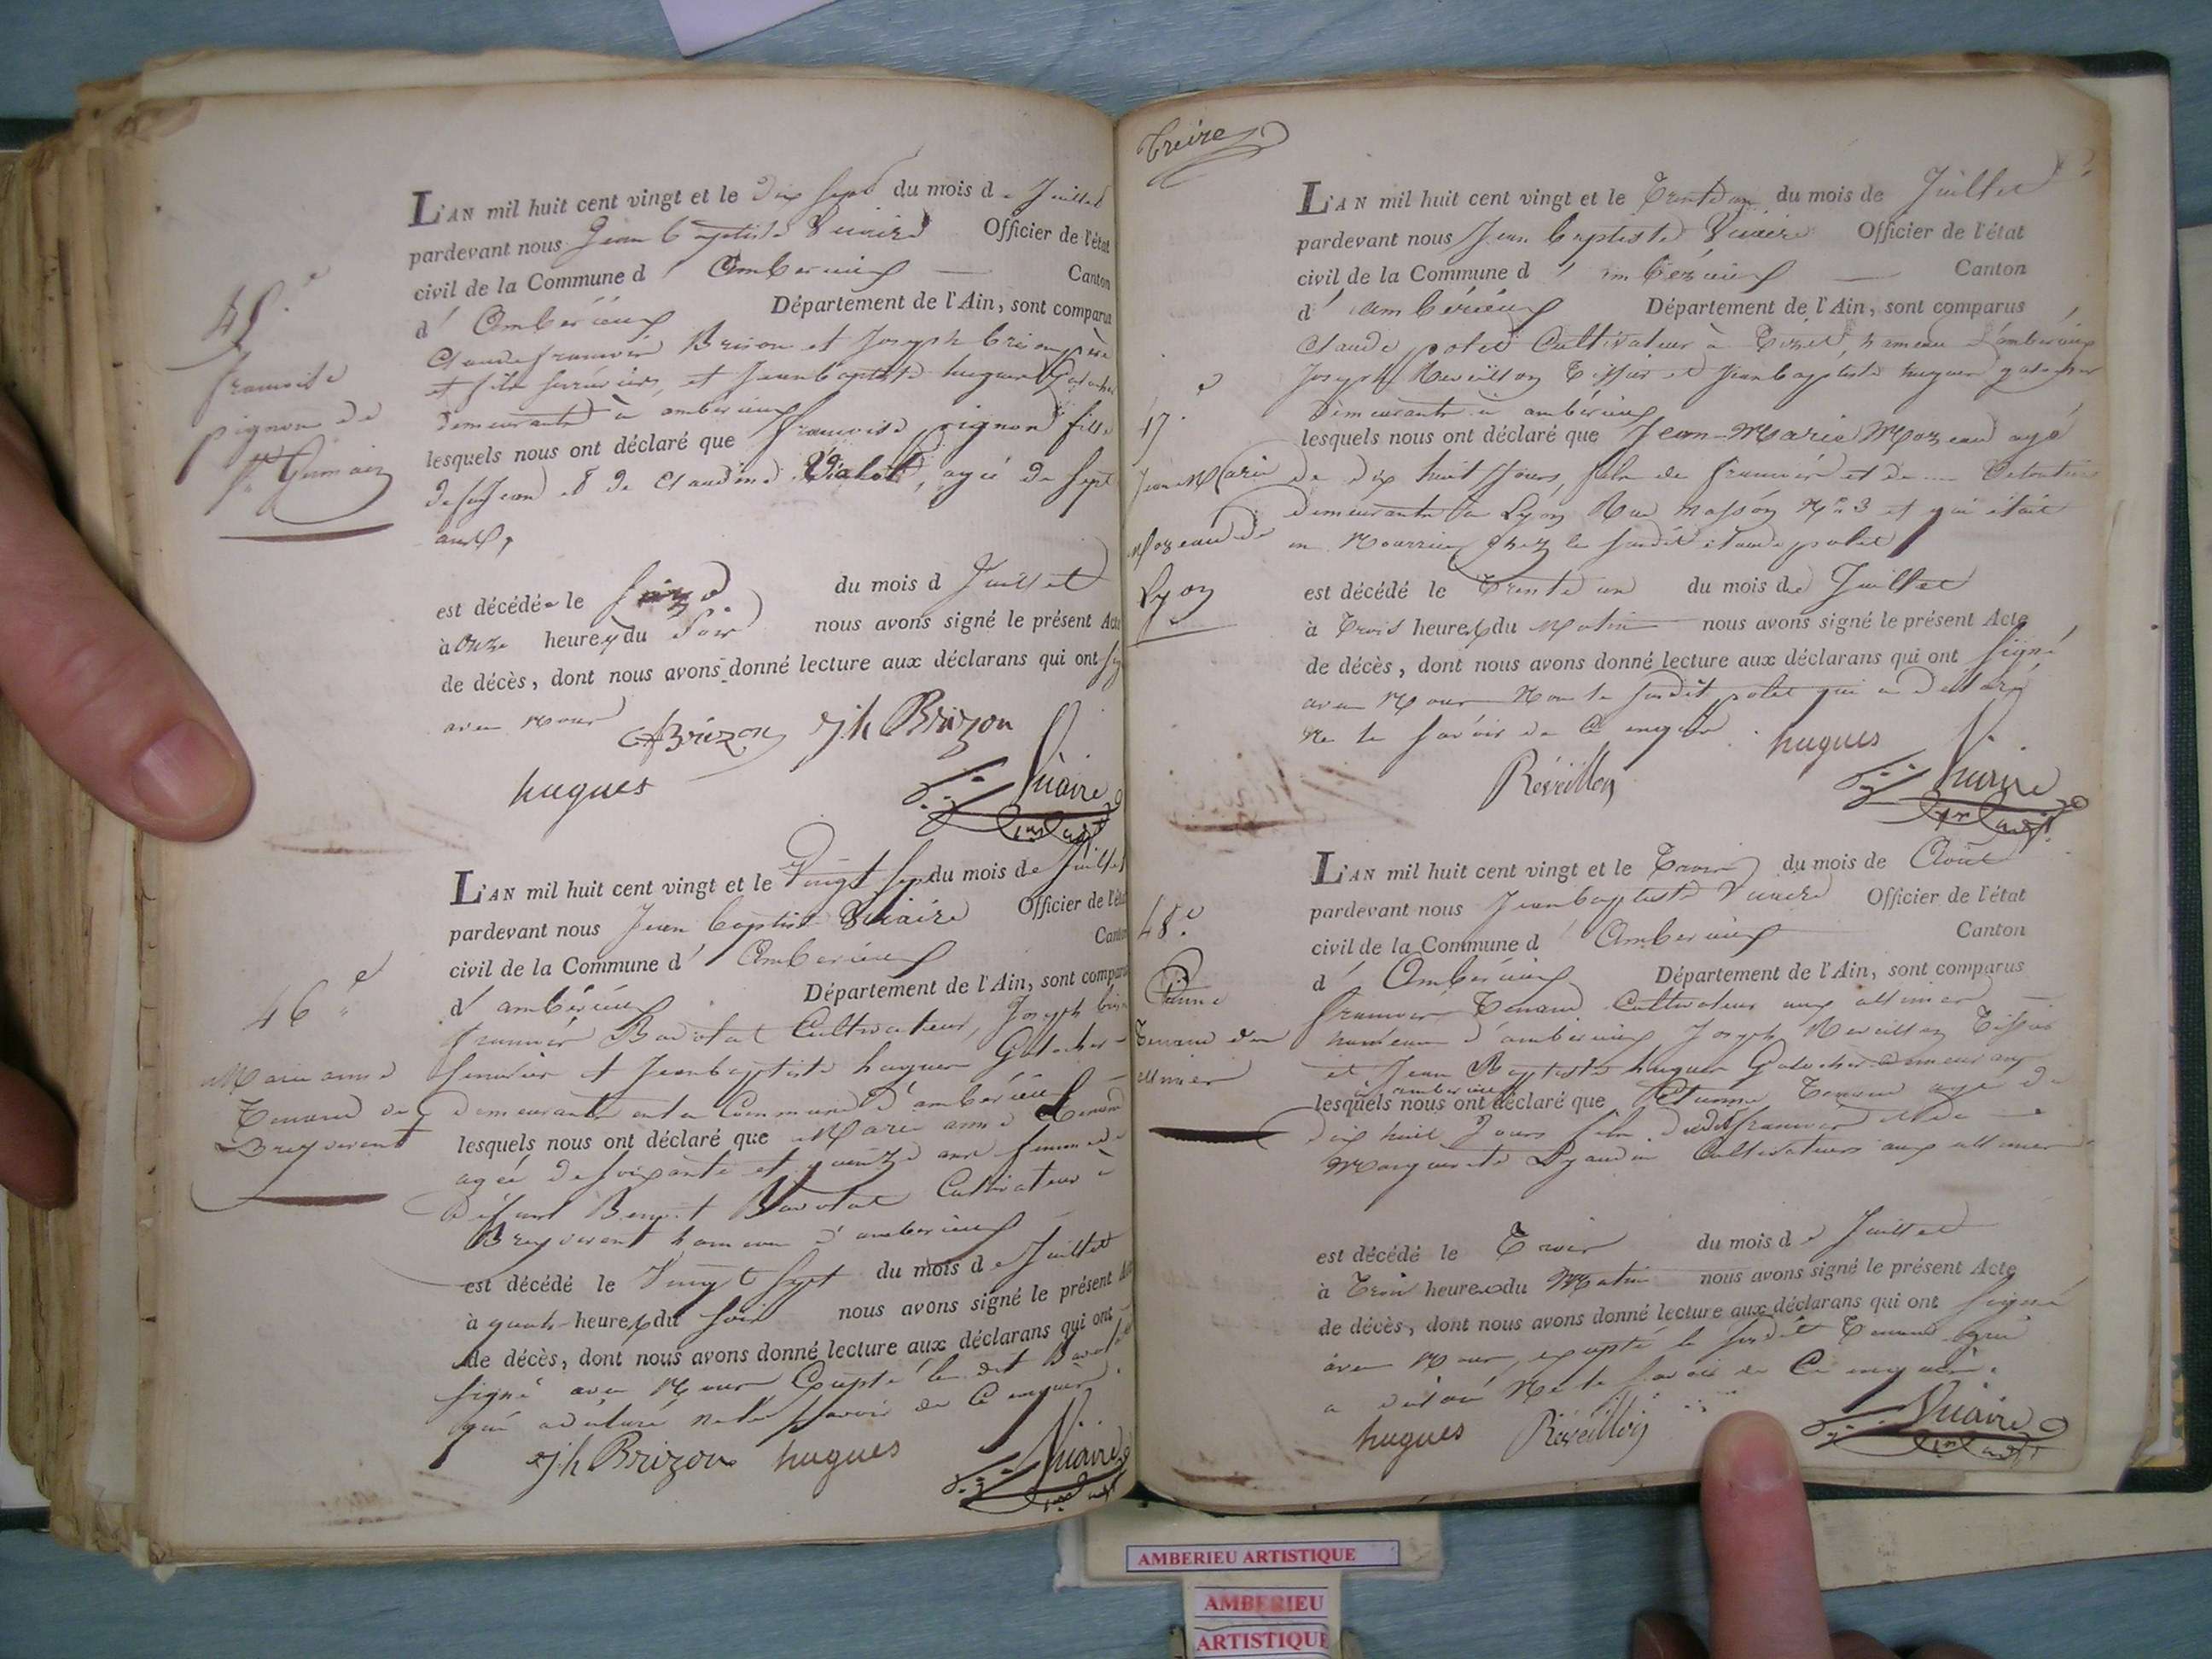 45.e
françoise
pignon de
St Germain
L'AN mil huit cent vingt et le dix sept du mois de Juillet
pardevant nous Jean baptiste Vicaire Officier de l'état
civil de la Commune d' Amberieux Canton
d' Ambérieux Département de l'Ain, sont comparus
Claude françois Brison et Joseph brison père
et fils serruriers, et Jeanbaptiste hugues
demeurants à amberieux
lesquels nous ont déclaré que françoise pignon fille
de feu Jean et de Claudine Vialet, agée de sept
ans,
est décédée le seize du mois d Juillet
à onze heures du Soir nous avons signé le présent Acte
de décès, dont nous avons donné lecture aux déclarans qui ont
avec nous
CF Brizon Jh Brizon
hugues Vicaire
46.e
Marie anne
Tenand de
Breydevent
L'AN mil huit cent vingt et le Vingt sept du mois de Juillet
pardevant nous Jean baptiste Vicaire Officier de l'état
civil de la Commune d' Amberieux Canton
d' ambérieux Département de l'Ain, sont comparus
françois Bavotat Cultivateur, Joseph
serrurier et Jeanbaptiste hugues
demeurants en la Commune d'ambérieux
lesquels nous ont déclaré que Marie anne Tenand
agée de soixante et quinze ans femme de
défunt Benoit Bavotat Cultivateur à
Breydevent hameau d'amberieux
est décédé le Vingt Sept du mois de Juillet
à quatre heures du soir nous avons signé le présent Acte
de décès, dont nous avons donné lecture aux déclarans qui ont
signé avec Nous Excepté le dit
qui a déclaré ne le savoir de Ce enquis.
Jh Brizon hugues Vicaire
Treize
47.e
Jean Marie
Mozeau de
Lyon
L'AN mil huit cent vingt et le Trente un du mois de Juillet
pardevant nous Jean baptiste Vicaire Officier de l'état
civil de la Commune d' ambérieux Canton
d' ambérieux Département de l'Ain, sont comparus
Claude polet Cultivateur à Tiret hameau d'ambérieux
Joseph Reveillon Tissier et Jeanbaptiste hugues
demeurants à ambérieux
lesquels nous ont déclaré que Jean-Marie Mozeau agé
de dix huit Jours, fils de françois et de ....
demeurants à Lyon Rue N° 3 et qui était
en Nourrice chez le susdit claude polet
est décédé le Trente un du mois de Juillet
à Trois heures du Matin nous avons signé le présent Acte
de décès, dont nous avons donné lecture aux déclarans qui ont signé
avec Nous Non le susdit polet qui a déclaré
ne le savoir de Ce enquis. hugues
Réveillon Vicaire
48.e
Etienne
Tenand des
allimes
L'AN mil huit cent vingt et le Trois du mois de Août
pardevant nous Jeanbaptiste Vicaire Officier de l'état
civil de la Commune d' Amberieux Canton
d' Ambérieux Département de l'Ain, sont comparus
françois Tenand Cultivateur aux allimes
hameau d'amberieux Joseph Reveillon Tissier
et Jean Baptiste hugues demeurans
à amberieux
lesquels nous ont déclaré que Etienne Tenand agé de
dix huit Jours fils dudit françois et de
Marguerite Cultivateurs aux allimes
est décédé le Trois du mois de Juillet
à Trois heures du Matin nous avons signé le présent Acte
de décès, dont nous avons donné lecture aux déclarans qui ont signé
avec Nous, excepté le susdit Tenand qui
a déclaré Ne le savoir de Ce enquis.
hugues Réveillon Vicaire
AMBERIEU ARTISTIQUE
AMBERIEU
ARTISTIQUE